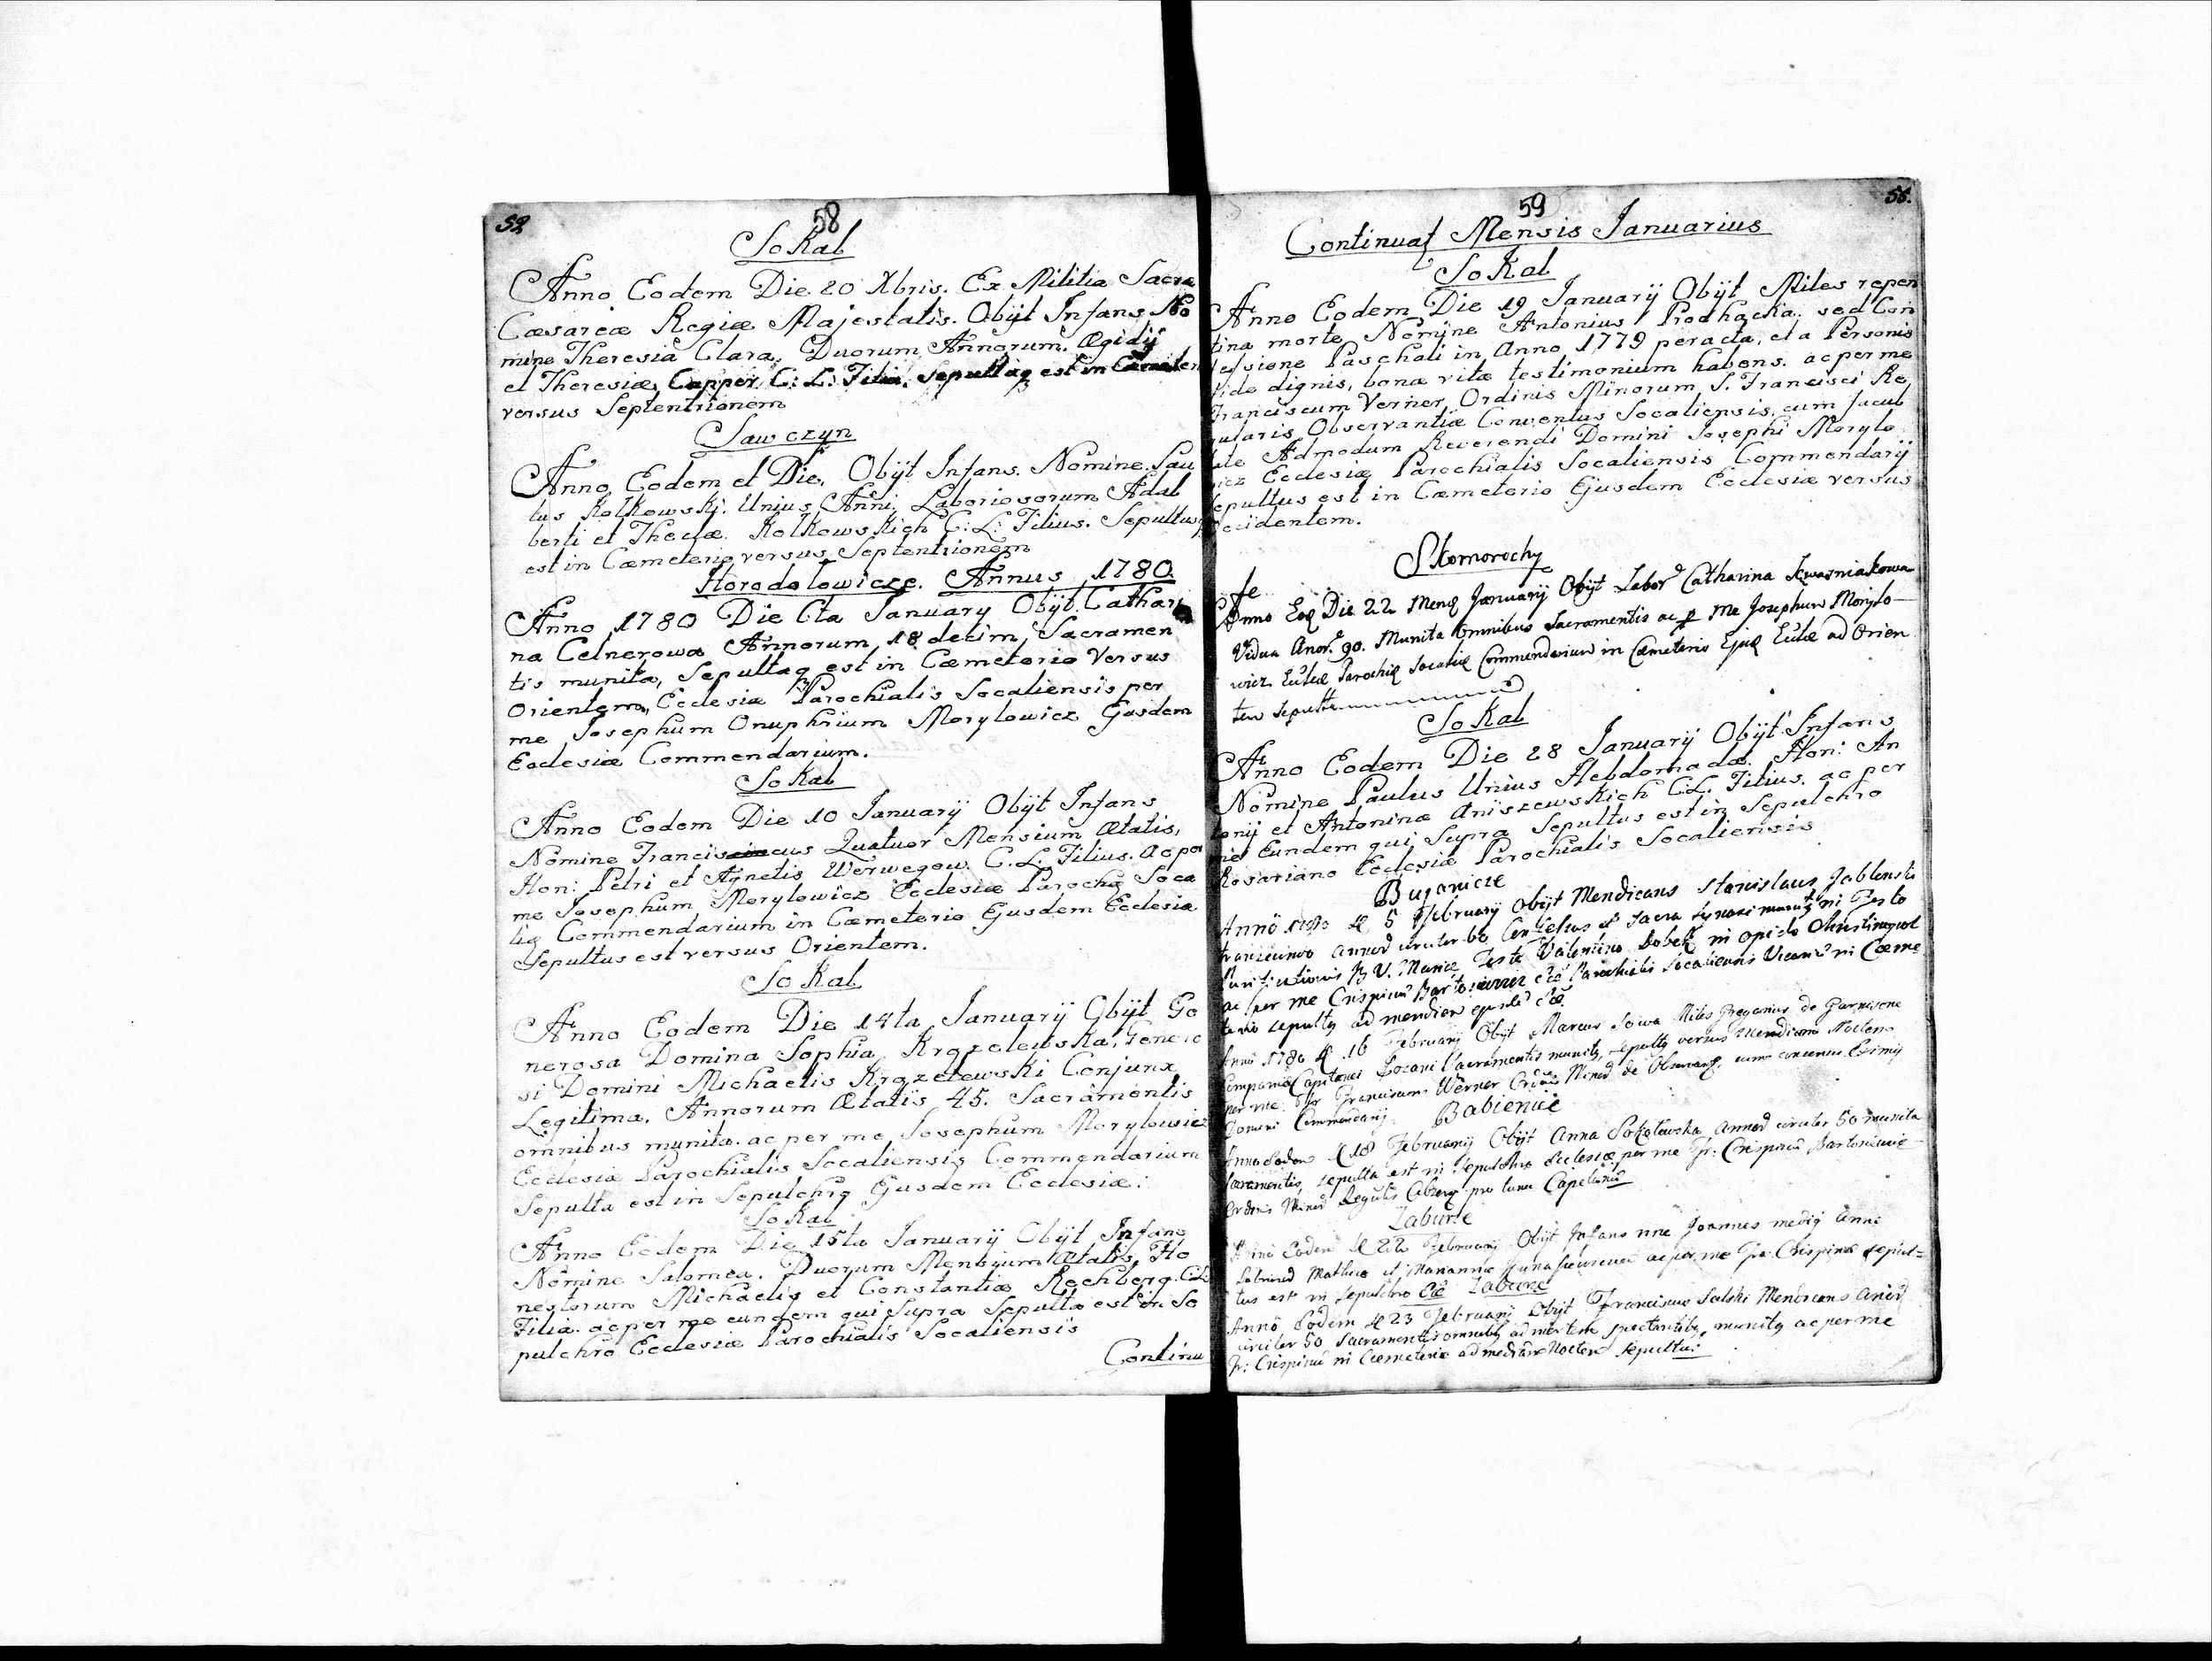 52
58
Sokal
Anno Eodem Die 20 Xbris. Ex Militia Sacra
Cæsareæ Regiæ Majestatis. Obijt Infans No
mine Theresia Clara, Duorum Annorum. Ægidij
et Theresiæ Capper. C: L: Filia, Sepultaq est in Cæmiter
versus Septentrionem
Sawczyn
Anno Eodem et Die, Obijt Infans. Nomine. Pau
lus Kolkowski. Unius Anni, Laboriosorum Adal
berti et Theclæ Kolkowskich C: L: Filius. Sepultusq
est in Cæmeterio versus Septentrionem
Horodolowicze. Annus 1780.
Anno 1780 Die 6ta January Obijt Cathari
na Celnerowa Annorum 18 decim, Sacramen
tis munita, Sepultaq est in Cæmeterio Versus
Orientem, Ecclesiæ Parochialis Socaliensis per
me Josephum Onuphrium Morylowicz Ejusdem
Ecclesiæ Commendarium.
Sokal
Anno Eodem Die 10 Januarij Obijt Infans
Nomine Franciscus Quatuor Mensium Ætatis,
Hon: Petri et Agnetis Werwegow. C. L. Filius. ac per
me Josephum Morylowicz Ecclesiæ Parochq Soca
liq Commendarium in Cæmeterio Ejusdem Ecclesiæ
Sepultus est versus Orientem.
Sokal
Anno Eodem Die 14ta Januarij Obijt Ge
nerosa Domina Sophia Krqzelewska, Genero
si Domini Michaelis Krqzelewski Conjunx
Legitima. Annorum Ætatis 45. Sacramentis
omnibus munita. ac per me Josephum Morylowicz
Ecclesiæ Parochialis Socaliensis Commendarium
Sepulta est in Sepulchro Ejusdem Ecclesiæ.
Sokal
Anno Eodem Die 15ta Januarij Obijt Infans
Nomine Salomea. Duorum Mensium Ætatis, Ho
nestorum Michaelis et Constantiæ Rechberg. C.L.
Filia. ac per me eundem qui Supra Sepulta est in Se
pulchro Ecclesiæ Parochialis Socaliensis
Continu
59
56.
Continuat Mensis Januarius
Sokal
Anno Eodem Die 19 Januarij Obijt Miles repen
tina morte Nomine Antonius Prodhacka, sed Con
fessione Paschali in Anno 1779 peracta, et a Personis
fide dignis, bonæ vitæ testimonium habens. ac per me
Franciscum Verner, Ordinis Minorum, S. Francisci Re
gularis Observantiæ Conventus Socaliensis, cum facul
tate Admodum Reverendi Domini Josephi Morylo
wicz Ecclesiæ Parochialis Socaliensis Commendarij
Sepultus est in Cæmeterio Ejusdem Ecclesiæ versus
Occidentem.
Skomorochy
Anno Eoq Die 22 Mensq Januarij Obijt Labor Catharina Kwasniakowa
Vidua Anor. 90. Munita Omnibus Sacramentis ac p me Josephum Morylo
wicz Commendarium in Cæmeterio Ejusq ad Orien
tem sepulta
Sokal
Anno Eodem Die 28 Januarij Obijt Infans
Nomine Paulus Unius Hebdomadæ. Hon: An
tonij et Antoninæ Aniszewskich C.L. Filius. ac per
me Eundem qui Supra Sepultus est in Sepulchro
Rosariano Ecclesiæ Parochialis Socaliensis
Buganicze
Anno 1780 5 February Obijt Mendicans Stanislaus Jablenski
circiter 60 et Sacra Synaxi in Festo
Purificationis B. V. Mariæ, Teste Valentino Dobek in opido
ac per me Crispinu Parochialis Socaliensis in Cæme
terio sepultq ad meridiem
Anno 1780 16 February Obijt Marcus Sowa Miles Gregarius de Garnisone
Sacramentis munitq, sepultq versus Meridiem
per me Fr Franciscum Werner
Domini Commendarij.
Babienice
Anno Eodem 18 February Obijt Anna Sokolowska circiter 50 munita
Sacramentis, sepulta est in Sepulchro Ecclesiæ per me Fr: Crispinu
Ordinis pro tunc Capelanu
Zaburze
Anno Eodem 22 February Obijt Infans nne Joannes medij Anni
Mathiæ et Mariannæ ac per me Fr: Crispinu sepul=
tus est in Sepulchro
Zaburze
Anno Eodem 23 February Obijt Franciscus Salski Mendicans
circiter 50 Sacramentis omnibq ad mortem spectantibq munitq ac per me
Fr: Crispinu in Cæmeterio Sepultus